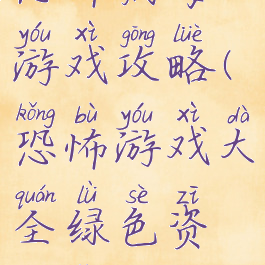 yóu xì gōng lüè
游戏攻略(
kǒng bù yóu xì dà
恐怖游戏大
quán lǜ sè zī
全绿色资